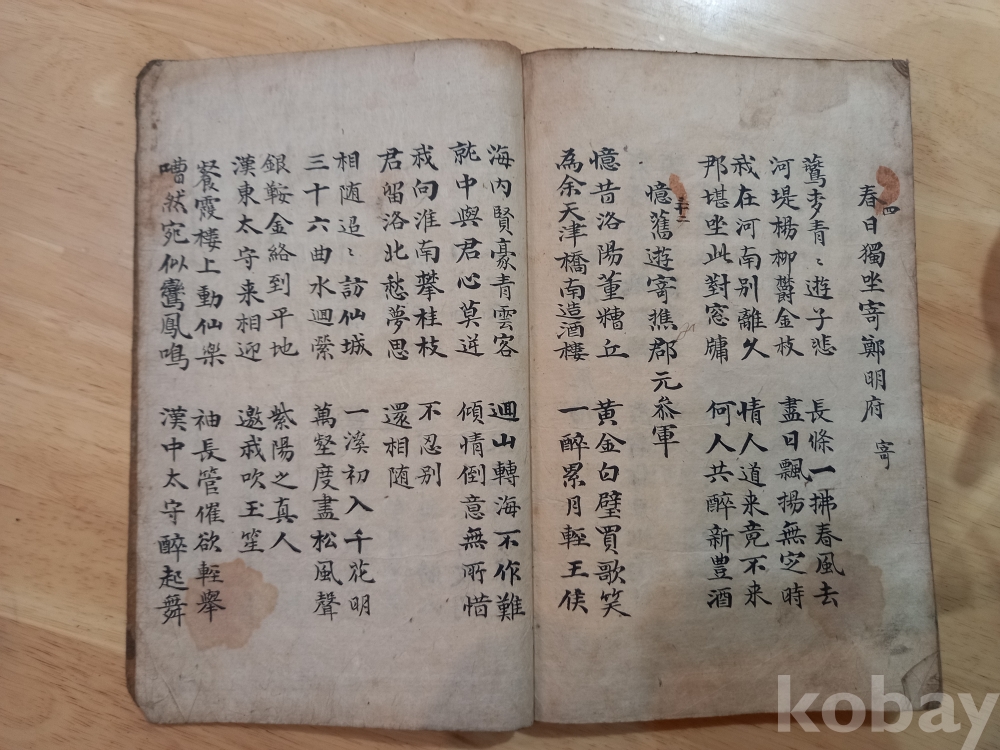 四
春日獨坐寄鄭明府 寄
鷰麥青〻遊子悲
河堤楊柳欝金枝
長條一拂春風去
盡日飄揚無定時
我在河南別離久
那堪坐此對窓牖
情人道来竟不来
何人共醉新豊酒
憶舊遊寄樵郡元叅軍
憶昔洛陽董糟丘
為余天津橋南造酒樓
黃金白璧買歌笑
一醉累月輕王侯
海內賢豪青雲客
就中與君心莫逆
迴山轉海不作難
傾情倒意無所惜
我向淮南攀桂枝
君留洛北愁夢思
不忍別
還相随
相随迢〻訪仙城
三十六曲水迴縈
一溪初入千花明
萬壑度盡松風聲
銀鞍金絡到平地
漢東太守来相迎
紫陽之真人
邀我吹玉笙
餐霞樓上動仙樂
嘈然宛似鸞鳳鳴
袖長管催欲輕舉
漢中太守醉起舞
kobay